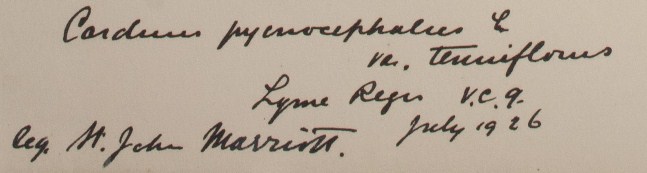 Carduus pycnocephalus L
var. tenuiflorus
Lyme Regis V.C.9.
July 1926
leg. St. John Marriott.